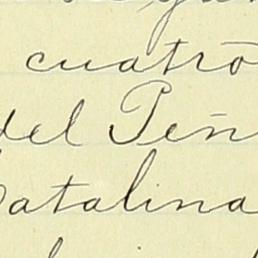 cuatro
del Peñ
Catalina